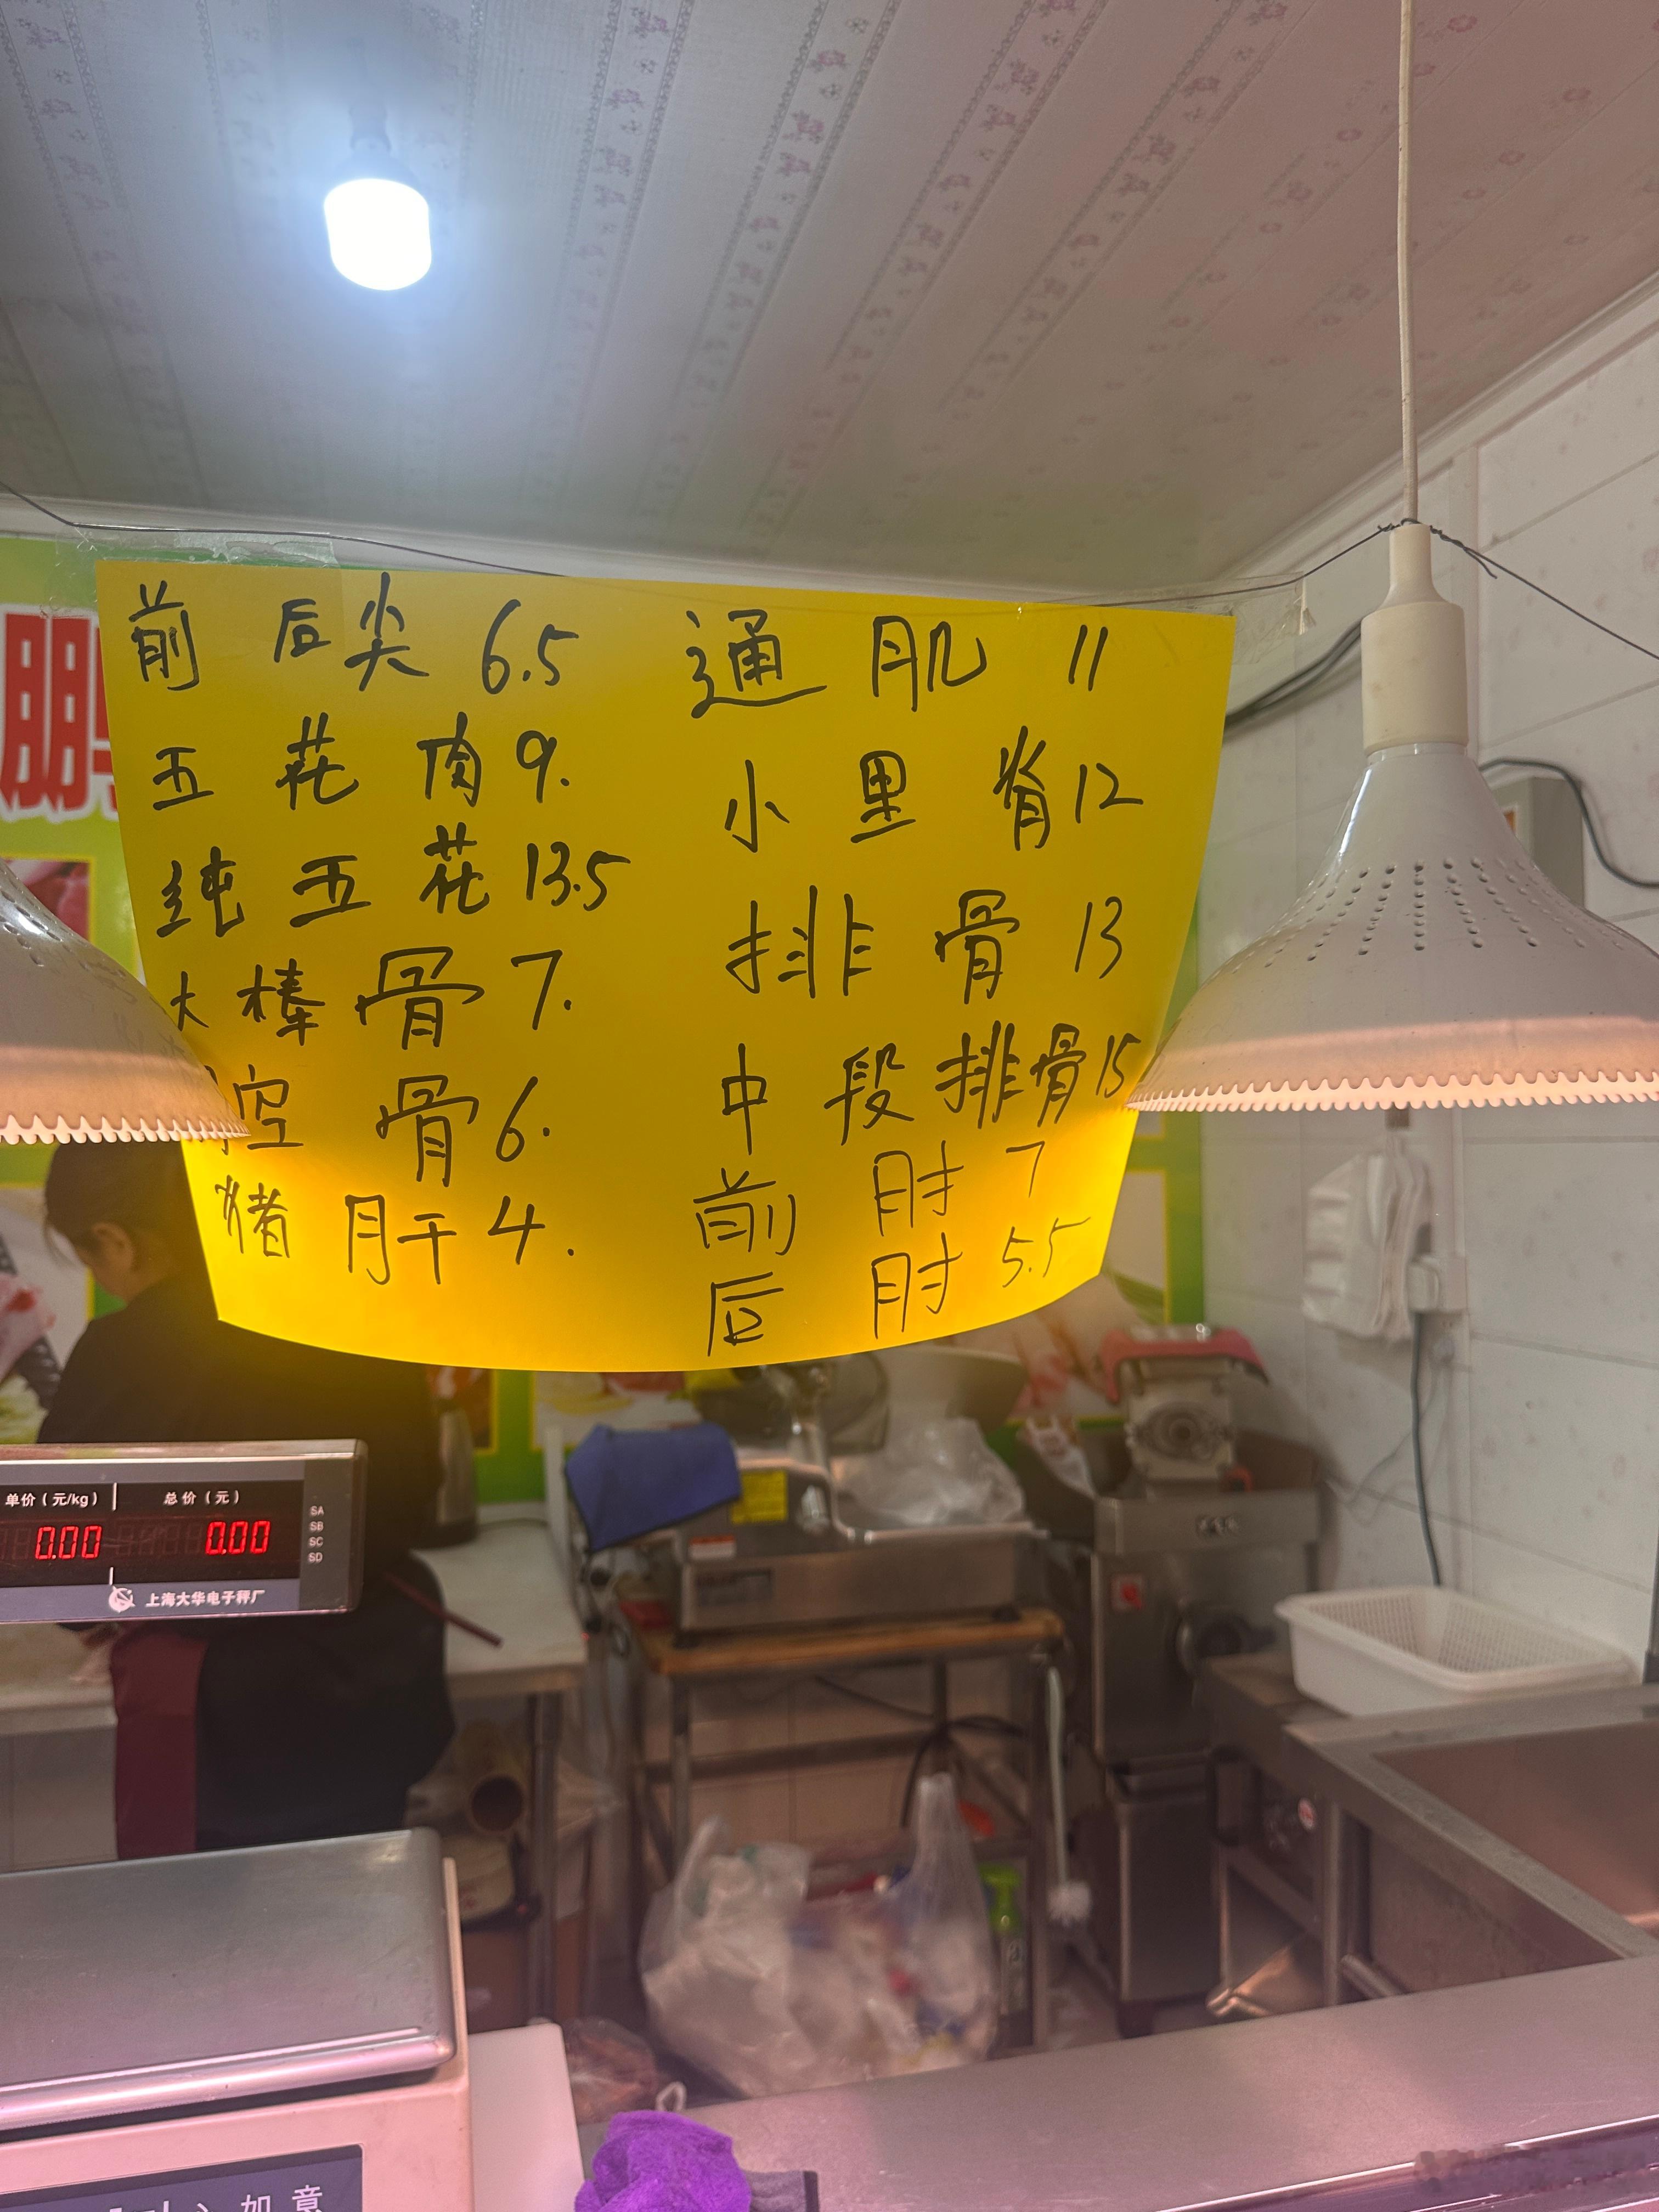 前 后尖 6.5
五 花 肉 9.
纯 五 花 13.5
大 棒 骨 7.
腔 骨 6.
猪 肝 4.
通 肌 11
小 里 脊 12
排 骨 13
中 段 排 骨 15
前 肘 7
后 肘 5.5
鹏
单价(元/kg) 总价(元)
0.00 0.00
SA
SB
SC
SD
上海大华电子秤厂
如意